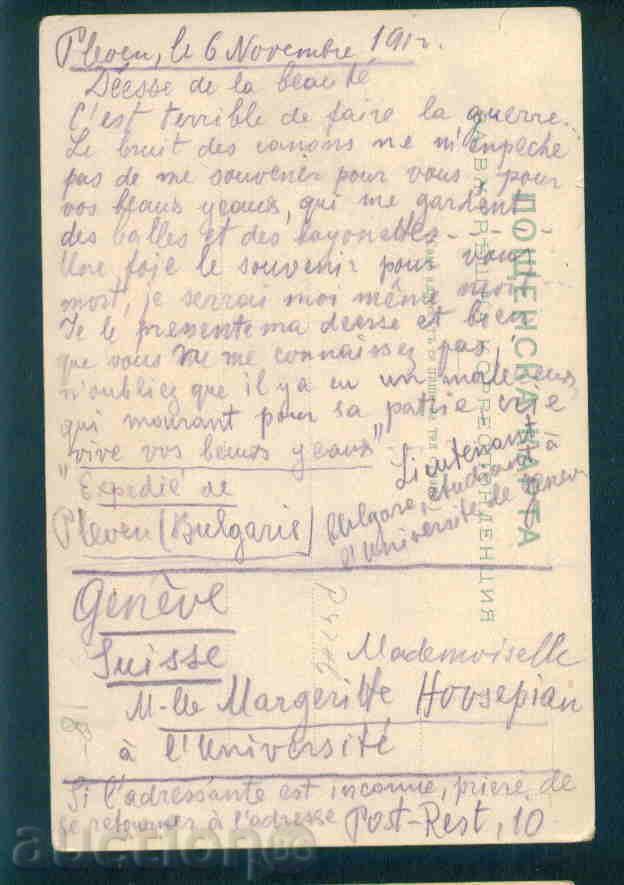 Pleven, le 6 Novembre 1912.
Déesse de la beauté
C'est terrible de faire la guerre.
Le bruit des canons ne m'enpeche
pas de me souvenir pour vous, pour
vos beaus yeaus, qui me gardent
des balles et des bayonettes.
Une foje le souvenir pour vous
mort, je serrai moi même mort
Je le presente ma deesse et bien
que vous ne me connaissez pas,
n'oubliez que il y a eu un malheureus,
qui mourant pour sa patrie crie
"vive vos beaus yeaus"
Lieutenant
Bulgare, étudiant à
l'Université de Genev
Expedié de
Pleven (Bulgarie)
Genève
Suisse
Mademoiselle
M-lle Margeritte Hovsepian
à l'Université
Si l'adressante est inconnue, prière de
se retourner à l'adresse Post-Rest, 10
ПОЩЕНСКА КАРТА
ЗА ВЪТРЕШНА КОРЕСПОНДЕНЦИЯ
18-
auction